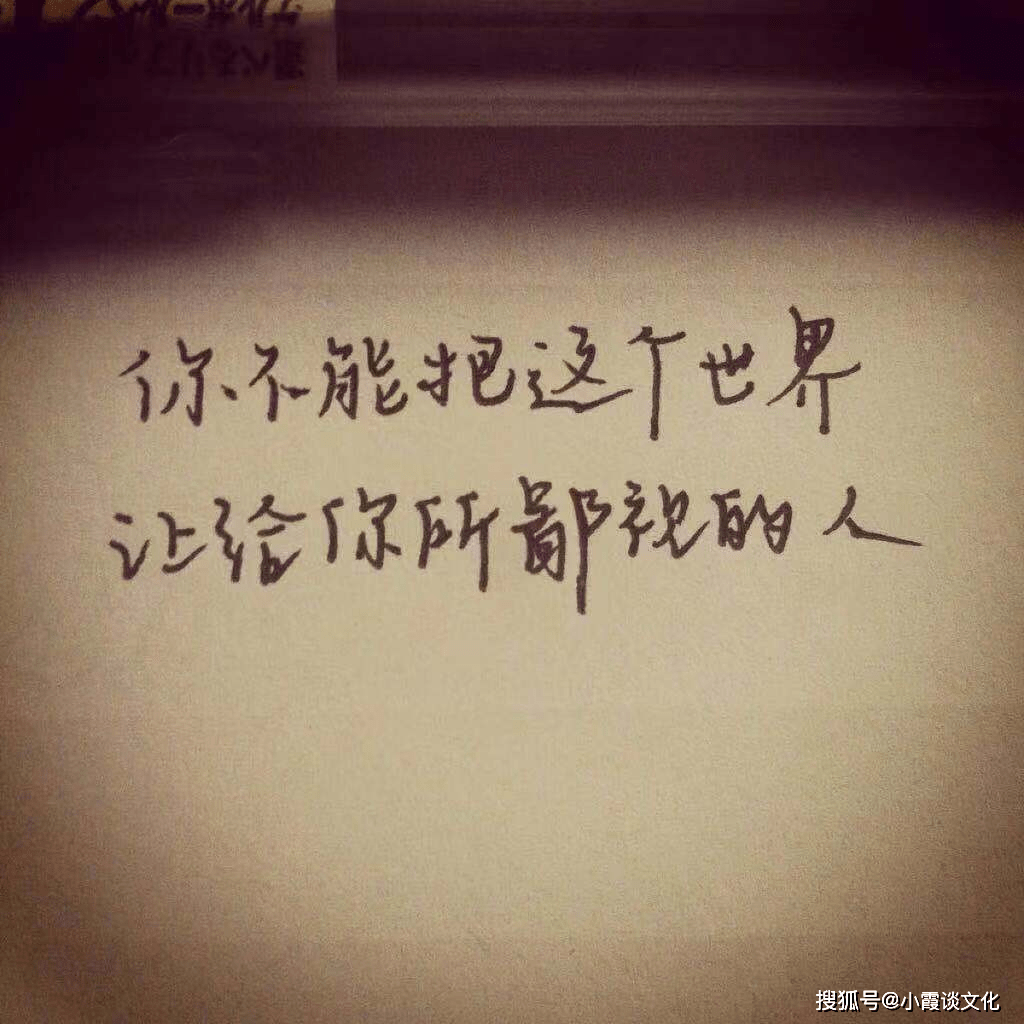 你不能把这个世界
让给你所鄙视的人
搜狐号@小霞谈文化